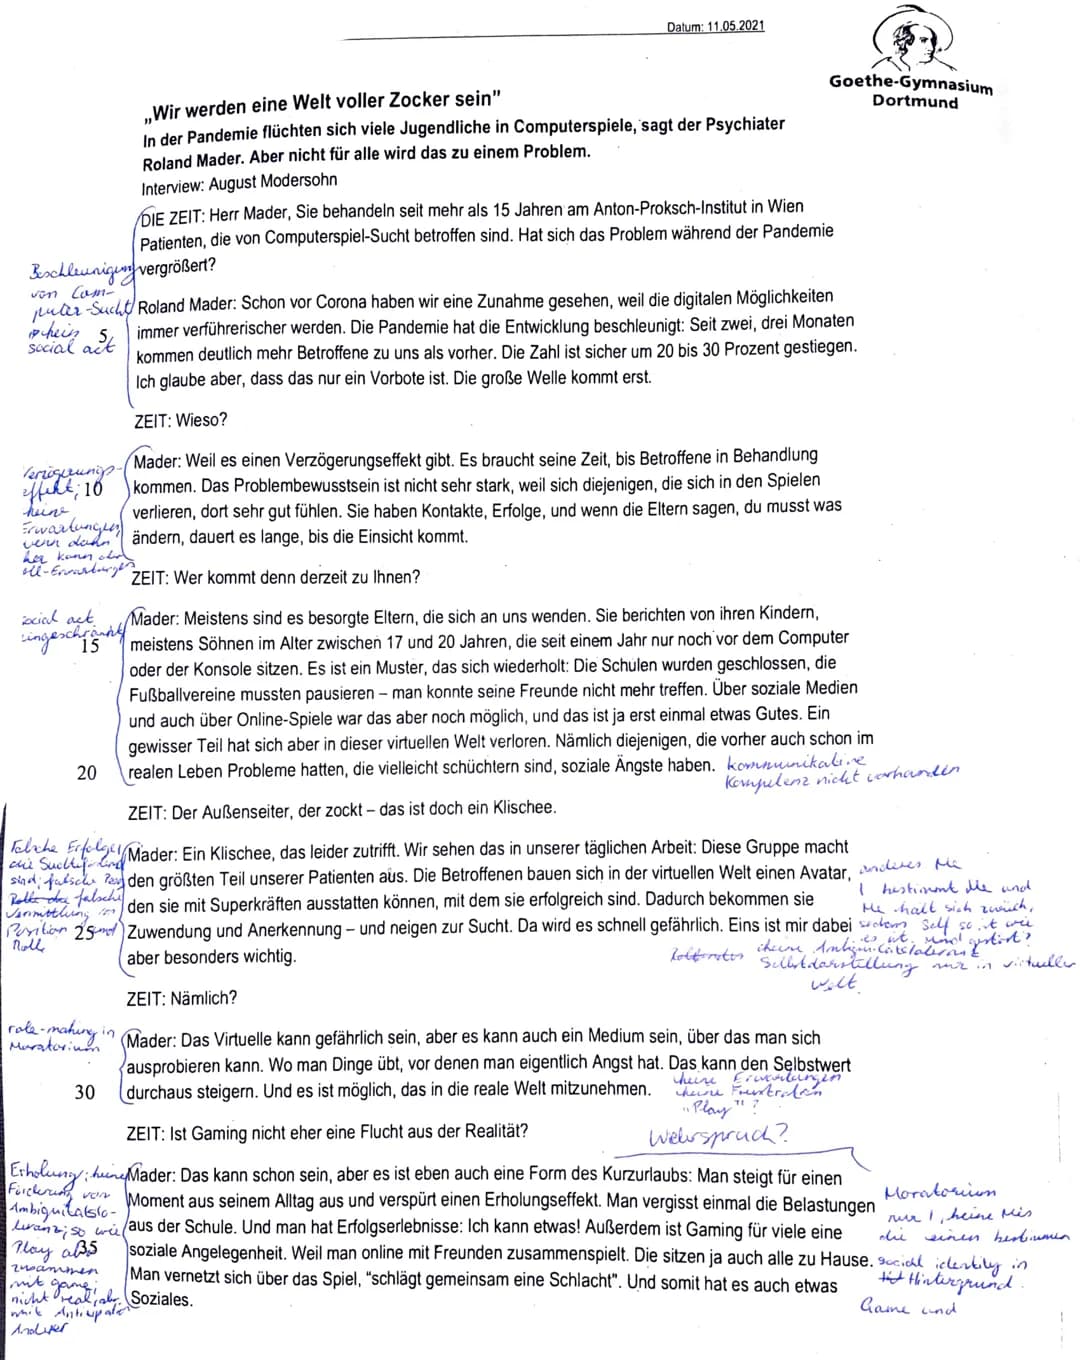 Datum: 11.05.2021
Goethe-Gymnasium
Dortmund
„Wir werden eine Welt voller Zocker sein"
In der Pandemie flüchten sich viele Jugendliche in Computerspiele, sagt der Psychiater
Roland Mader. Aber nicht für alle wird das zu einem Problem.
Interview: August Modersohn
DIE ZEIT: Herr Mader, Sie behandeln seit mehr als 15 Jahren am Anton-Proksch-Institut in Wien
Patienten, die von Computerspiel-Sucht betroffen sind. Hat sich das Problem während der Pandemie
vergrößert?
Beschleunigung
von Com-
puter-Sucht
kein
social act
Roland Mader: Schon vor Corona haben wir eine Zunahme gesehen, weil die digitalen Möglichkeiten
5 immer verführerischer werden. Die Pandemie hat die Entwicklung beschleunigt: Seit zwei, drei Monaten
kommen deutlich mehr Betroffene zu uns als vorher. Die Zahl ist sicher um 20 bis 30 Prozent gestiegen.
Ich glaube aber, dass das nur ein Vorbote ist. Die große Welle kommt erst.
ZEIT: Wieso?
Verzögerungs-
effekt;
keine
Erwartungen,
wenn dann
her kann
Mader: Weil es einen Verzögerungseffekt gibt. Es braucht seine Zeit, bis Betroffene in Behandlung
10 kommen. Das Problembewusstsein ist nicht sehr stark, weil sich diejenigen, die sich in den Spielen
verlieren, dort sehr gut fühlen. Sie haben Kontakte, Erfolge, und wenn die Eltern sagen, du musst was
ändern, dauert es lange, bis die Einsicht kommt.
ZEIT: Wer kommt denn derzeit zu Ihnen?
social act
eingeschränkt
Mader: Meistens sind es besorgte Eltern, die sich an uns wenden. Sie berichten von ihren Kindern,
15 meistens Söhnen im Alter zwischen 17 und 20 Jahren, die seit einem Jahr nur noch vor dem Computer
oder der Konsole sitzen. Es ist ein Muster, das sich wiederholt: Die Schulen wurden geschlossen, die
Fußballvereine mussten pausieren – man konnte seine Freunde nicht mehr treffen. Über soziale Medien
und auch über Online-Spiele war das aber noch möglich, und das ist ja erst einmal etwas Gutes. Ein
gewisser Teil hat sich aber in dieser virtuellen Welt verloren. Nämlich diejenigen, die vorher auch schon im
20 realen Leben Probleme hatten, die vielleicht schüchtern sind, soziale Ängste haben.
kommunikative
Kompetenz nicht vorhanden
ZEIT: Der Außenseiter, der zockt – das ist doch ein Klischee.
Falsche Erfolge,
die
sind; falsche
falsche
Vermittlung von
Position und
Rolle
Mader: Ein Klischee, das leider zutrifft. Wir sehen das in unserer täglichen Arbeit: Diese Gruppe macht
den größten Teil unserer Patienten aus. Die Betroffenen bauen sich in der virtuellen Welt einen Avatar,
den sie mit Superkräften ausstatten können, mit dem sie erfolgreich sind. Dadurch bekommen sie
25 Zuwendung und Anerkennung – und neigen zur Sucht. Da wird es schnell gefährlich. Eins ist mir dabei
aber besonders wichtig.
anderes Me
I bestimmt Me und
Me hält sich zurück,
sodass Self so ist wie
es ist
keine Ambiguitätstoleranz
Selbstdarstellung nur in virtueller
Welt
ZEIT: Nämlich?
role-making in
Moratorium
Mader: Das Virtuelle kann gefährlich sein, aber es kann auch ein Medium sein, über das man sich
ausprobieren kann. Wo man Dinge übt, vor denen man eigentlich Angst hat. Das kann den Selbstwert
30 durchaus steigern. Und es ist möglich, das in die reale Welt mitzunehmen.
keine Erwartungen
keine Frustration
"Play"?
ZEIT: Ist Gaming nicht eher eine Flucht aus der Realität?
Erholung; keine
Förderung von
Ambiguitätsto-
leranz; so wie
Play als
zusammen
mit game;
nicht real, aber
mit Antizipation
Anderer
Mader: Das kann schon sein, aber es ist eben auch eine Form des Kurzurlaubs: Man steigt für einen
Moment aus seinem Alltag aus und verspürt einen Erholungseffekt. Man vergisst einmal die Belastungen
aus der Schule. Und man hat Erfolgserlebnisse: Ich kann etwas! Außerdem ist Gaming für viele eine
35 soziale Angelegenheit. Weil man online mit Freunden zusammenspielt. Die sitzen ja auch alle zu Hause.
Man vernetzt sich über das Spiel, "schlägt gemeinsam eine Schlacht". Und somit hat es auch etwas
Soziales.
Moratorium
nur I, keine Me's
die einen bestimmen
social identity in
Hintergrund.
Game und